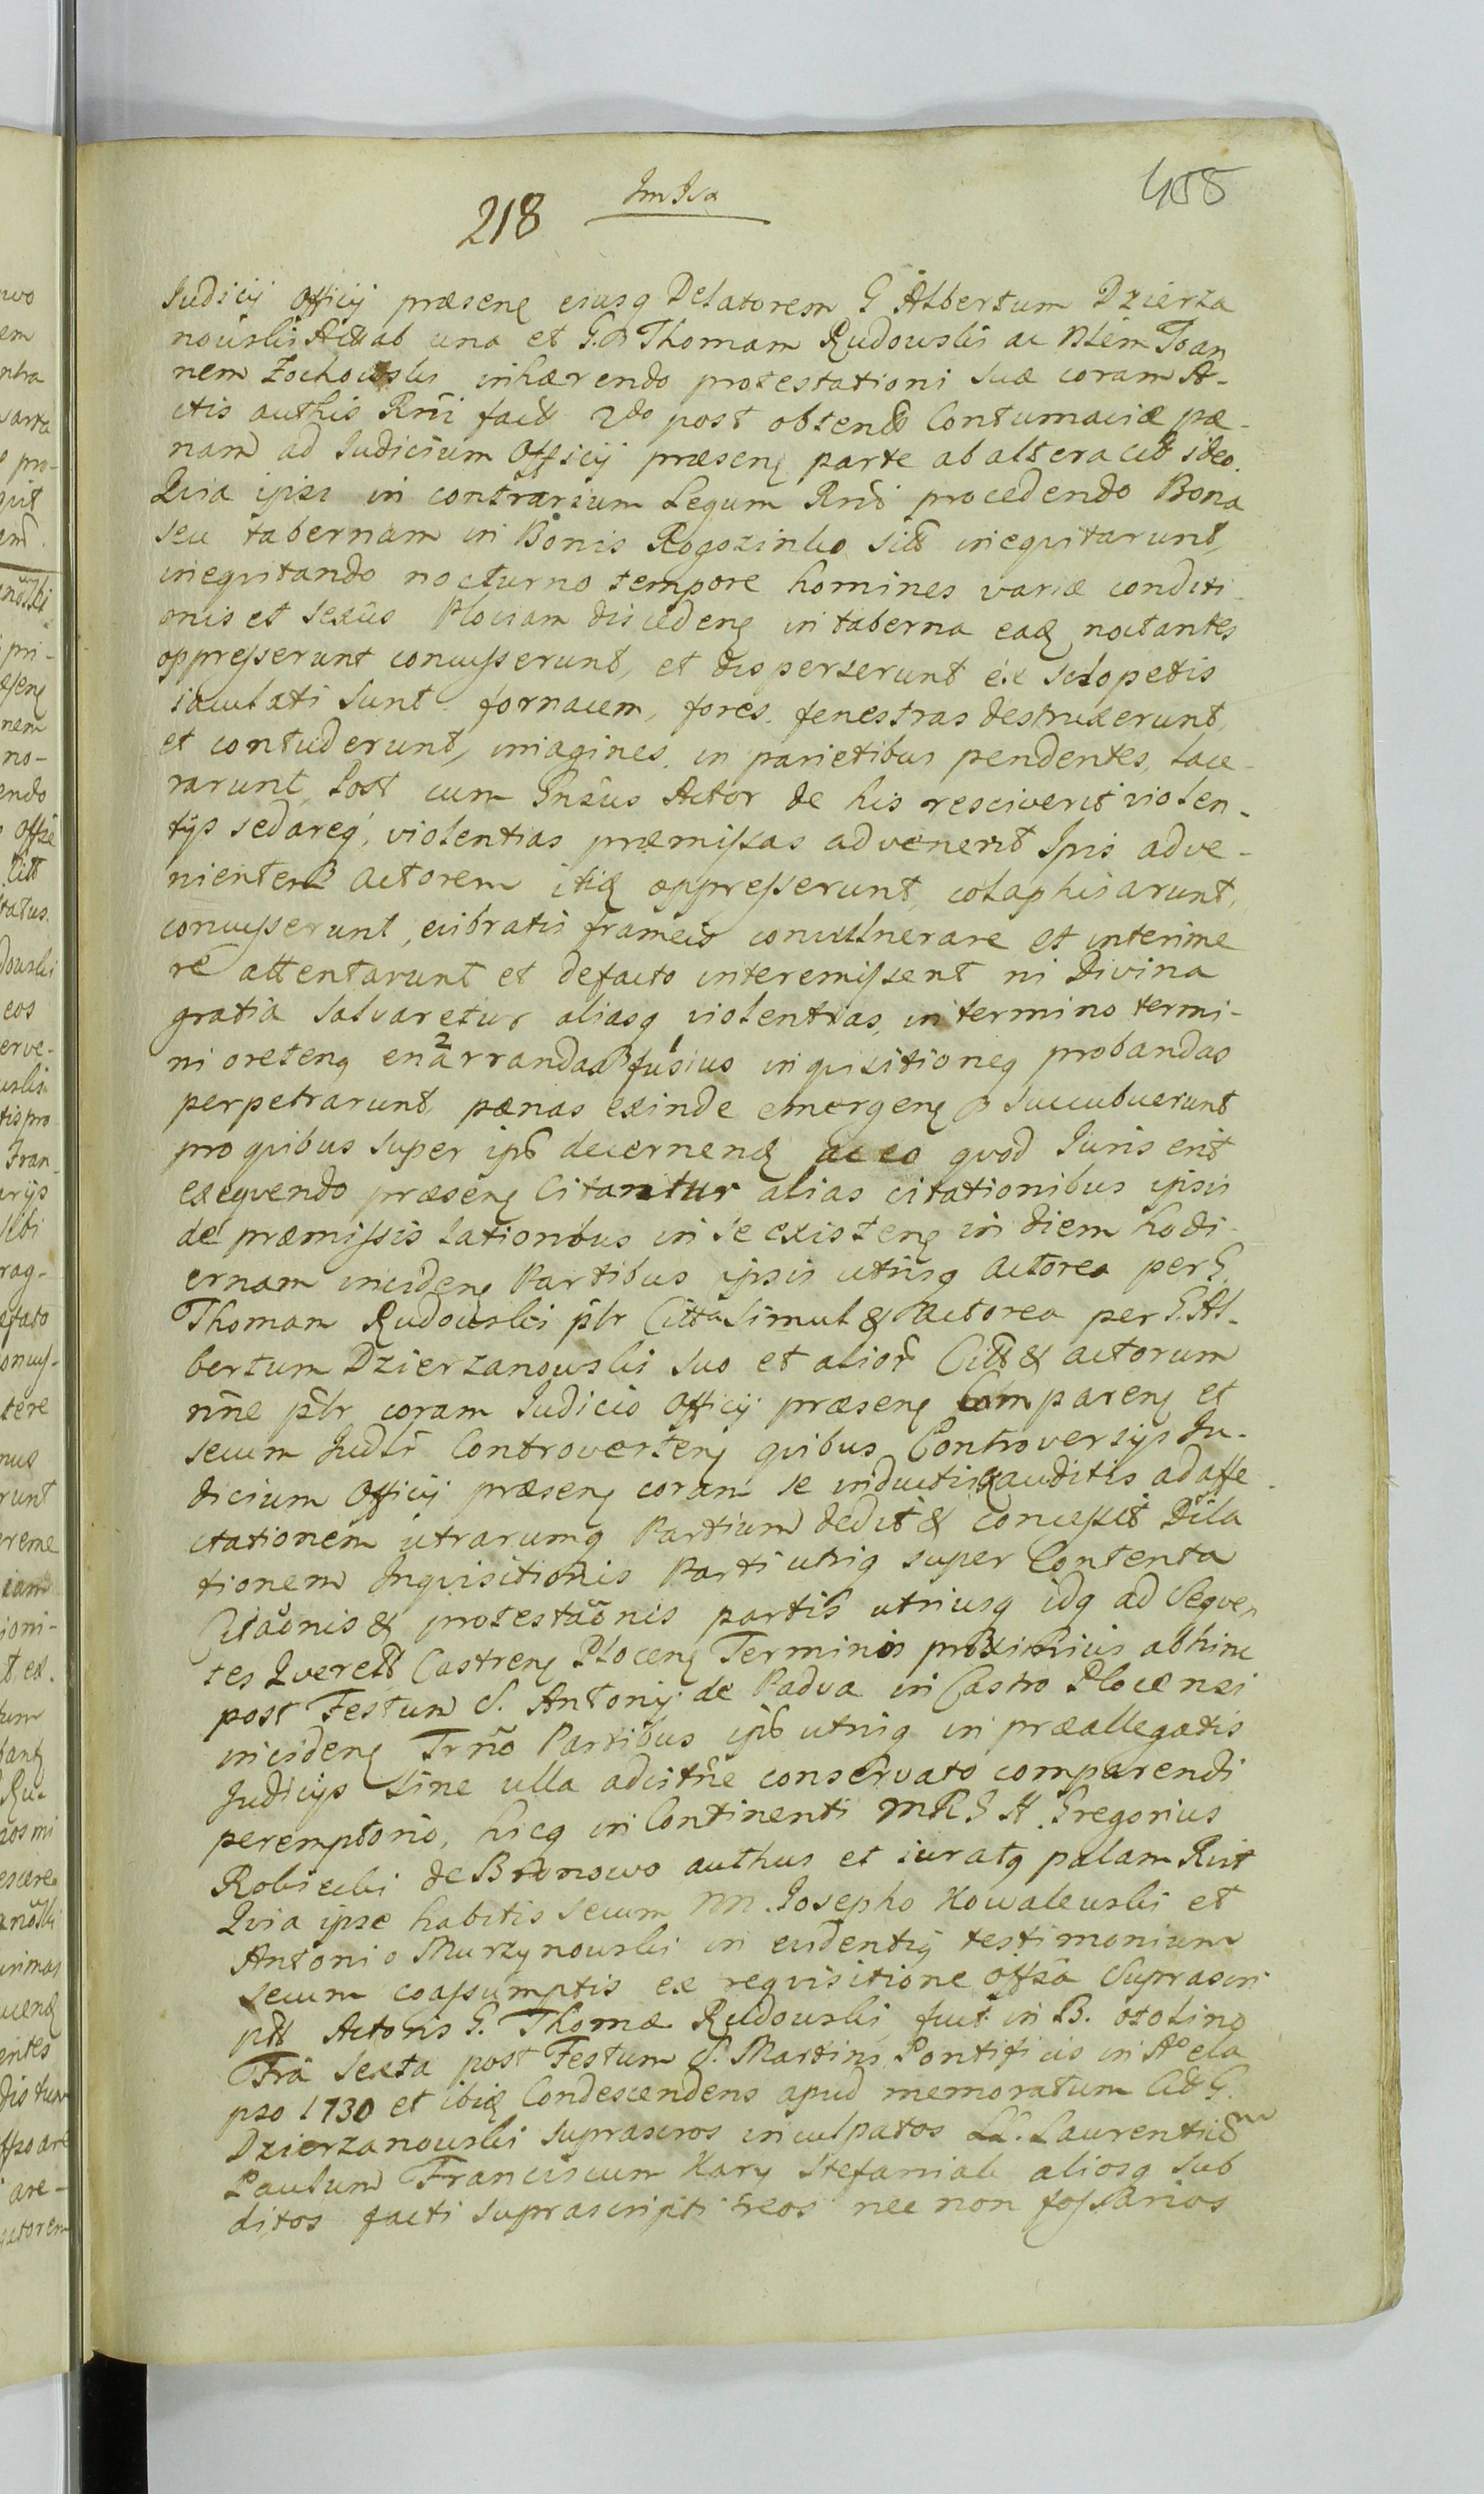 218
455
Judicij Officij præsenę eiusq Delatorem G Albertum Dzierza
nowski Act ab una et G. Thomam Rudowski ac Nlem Joan
nem Zochowski inhærendo protestationi suæ coram A-
ctis authis Rni fact 2do post obtent Contumaciæ pæ-
nam ad Judicium Officij præsenę parte ab altera citt ideo.
Qvia ipsi in contrarium Legum Rni procedendo Bona
seu tabernam in Bonis Rogozinko sitt ineqvitarunt,
ineqvitando nocturno tempore homines variæ conditi
onis et sexus Plociam discedenę in taberna eadę noctantes
oppresserunt concusserunt, et disperserunt ex sclopetis
iaculati sunt fornacem, fores, fenestras destruxerunt,
et contuderunt, imagines, in parietibus pendentes, lace-
rarunt, Post cum Prnsus Actor de his resciverit violen-
tijs sedareq, violentias præmissas advenerit Ipis adve-
nientem actorem itid oppresserunt, colaphisarunt,
concusserunt, evibratis frameis convulnerare et interime
re attentarunt et defacto interemissent ni Divina
gratia salvaretur aliasq violentias, in termino termi-
ni oretenq enarrandas fusius inqvisitioneq probandas
perpetrarunt, pænas exinde emergenę succubuerunt
pro qvibus super ips decernend ac eo qvod Juris erit
exeqvendo præsenę Citantur alias citationibus ipsis
de præmissis lationibus in se existenę in diem hodi-
ernam incidenę Partibus ipsis utrisq actorea per G.
Thomam Rudowski pltr Citta simul & actorea per G. Al-
bertum Dzierzanowski suo et alior Citt & actorum
nne pltr coram Judicio Officij præsenę Comparenę et
secum Judlr Controvertenę qvibus Controversijs Ju-
dicium Officij præsenę coram se inductis & auditis ad affe-
ctationem utrarumq Partium dedit & concessit Dila
tionem Inqvisitionis Parti utriq super Contenta
Citaonis & protestaonis partis utriusq idq ad Seqven
tes Qverell Castrenę Plocenę Terminos proximius abhinc
post Festum S. Antonij de Padva in Castro Plocensi
incidenę Trno Partibus ips utriq in præallegatis
Judicijs sine ulla adcitne conservato comparendi
peremptorio, hicq in Continenti MRS H. Gregorius
Robiecki de Bronowo authus et iuratq palam Rcit
Qvia ipse habitis secum NN. Josepho Kowalewski et
Antonio Murzynowski in evidentiq testimonium
secum coassumptis ex reqvisitione offsa Suprascri
ptt Actoris G. Thomæ Rudowski fuit in B. Ozolino
Fra Sexta post Festum S. Martini Pontificis in Ao ela
pso 1730 et ibid Condescendens apud memoratum Citt G.
Dzierzanowski suprascros inculpatos LL. Laurentium
Paulum Franciscum Kary Stefaniak aliosq sub
ditos facti suprascripti reos nec non fossarios